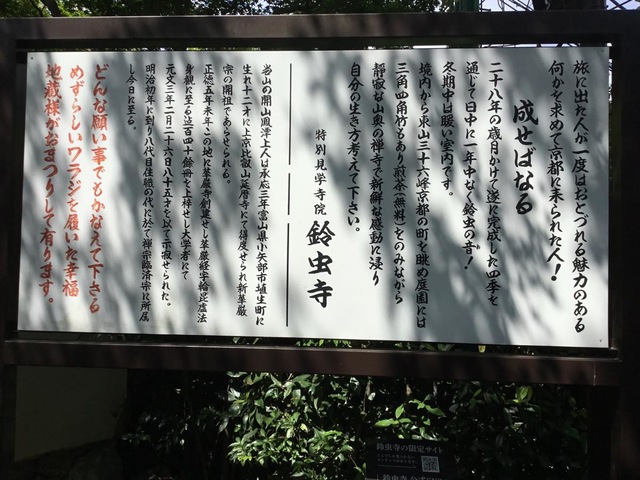 旅に出た人が一度はおとづれる魅力のある
何かを求めて京都に来られた人!
成せばなる
二十八年の歳月かけて遂に完成した四季を
通じて日中に一年中なく鈴虫の音!
冬期中は暖い室内です。
境内から東山三十六峰京都の町を眺め庭園には
三角四角竹もあり煎茶(無料)をのみながら
静寂な山奥の禅寺で新鮮な感動に浸り
自分の生き方考えて下さい。
特別見学寺院 鈴虫寺
当山の開山鳳潭上人は承応三年富山県小矢部市埴生町に
生れ十二才に上京比叡山延暦寺にて得度せられ新華厳
宗の開祖であらせられる。
正徳五年未年この地に華厳寺創建せし華厳経字輪毘盧法
身観に至る迄百四十余冊を上梓せし大学者にて
元文三年二月二十六日八十五才を以て示寂せられた。
明治初年に到り八代目住職の代に於て禅宗臨済宗に所属
し今日に至る。
どんな願い事でもかなえて下さる
めずらしいワラジを履いた幸福
地蔵様がおまつりして有ります。
鈴虫寺の限定サイト
鈴虫寺 公式